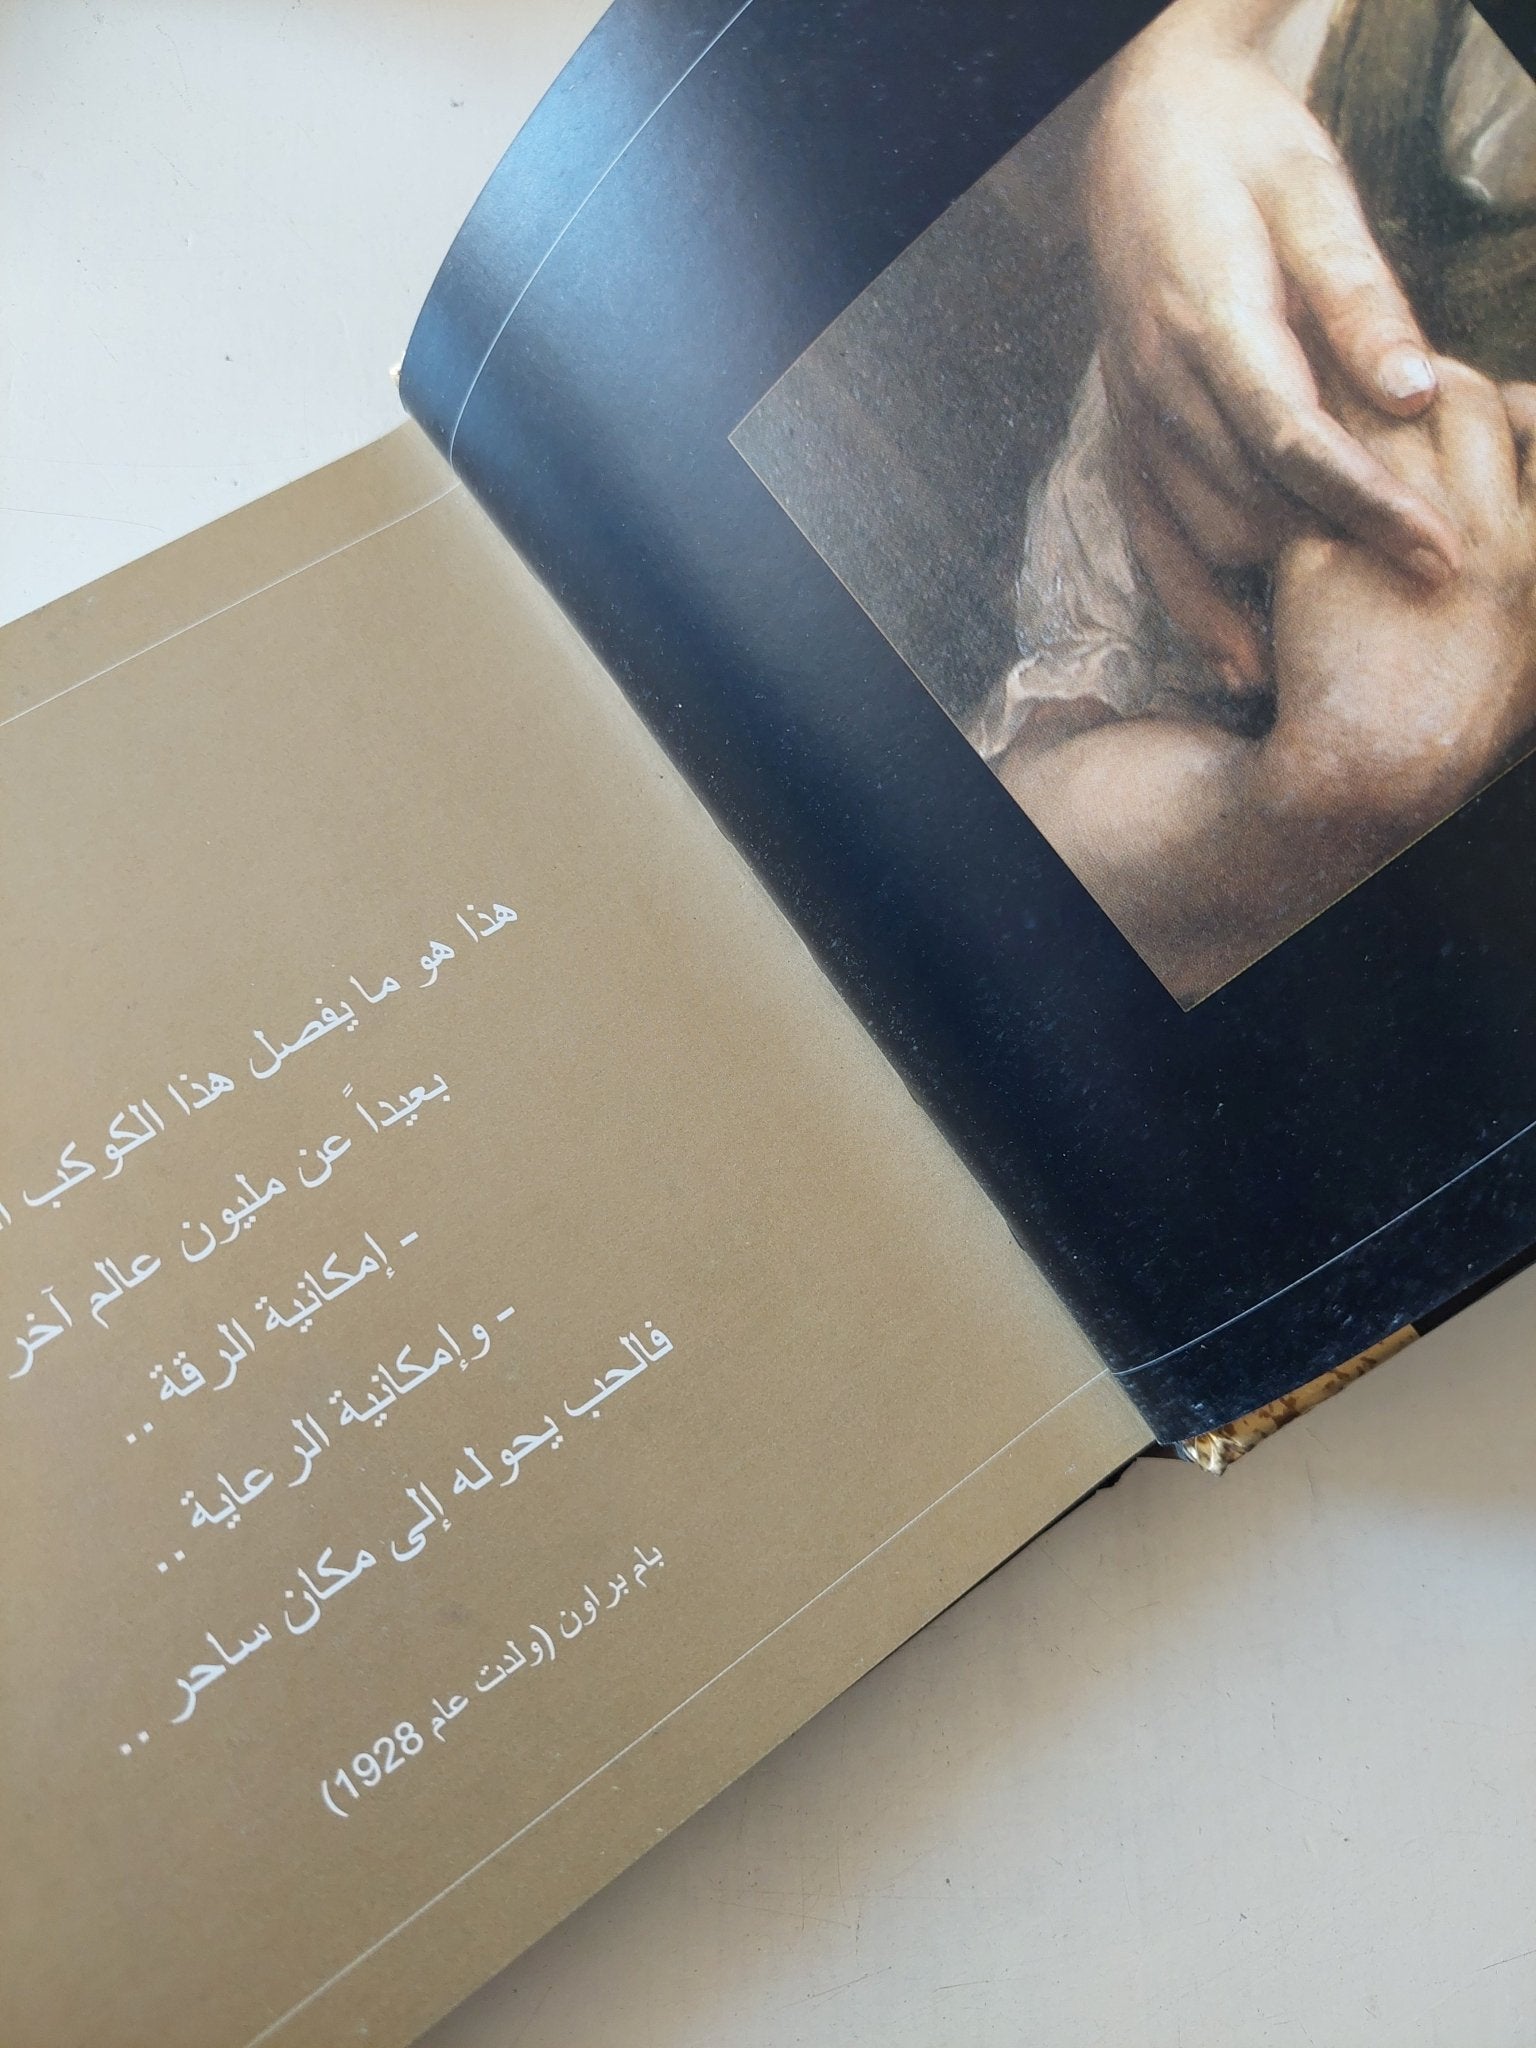 هذا هو ما يفصل هذا الكوكب
بعيداً عن مليون عالم آخر
- إمكانية الرقة ..
- وإمكانية الرعاية ..
فالحب يحوله إلى مكان ساحر ..
بام براون (ولدت عام 1928)